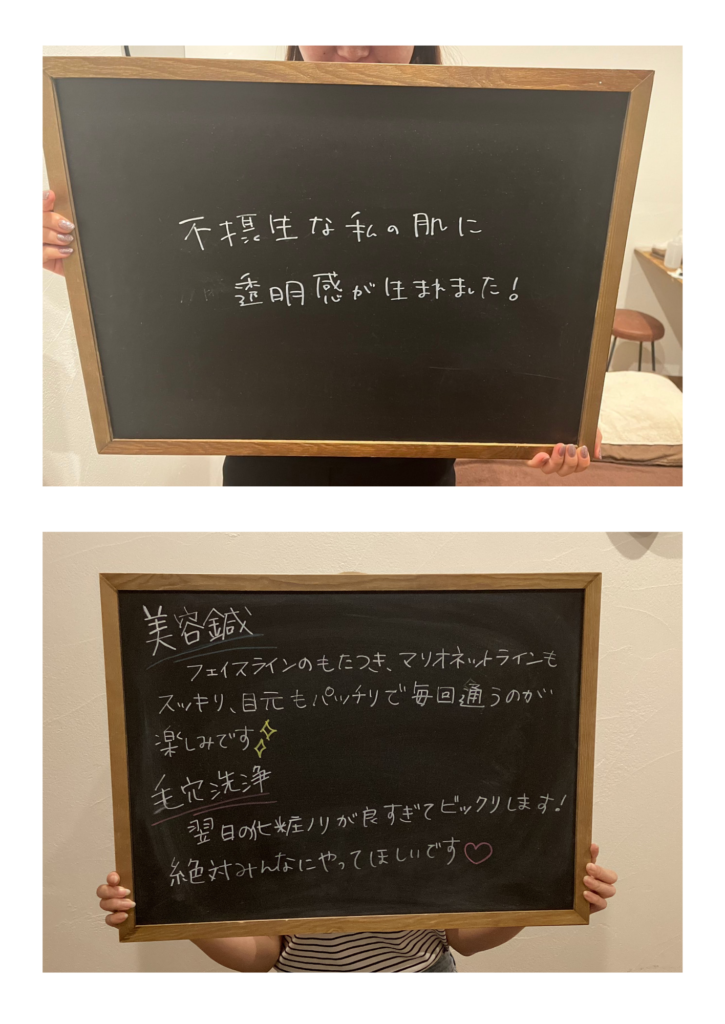 不摂生な私の肌に
透明感が生まれました!
美容鍼
フェイスラインのもたつき、マリオネットラインも
スッキリ、目元もパッチリで毎回通うのが
楽しみです
毛穴洗浄
翌日の化粧ノリが良すぎてビックリします!
絶対みんなにやってほしいです♡